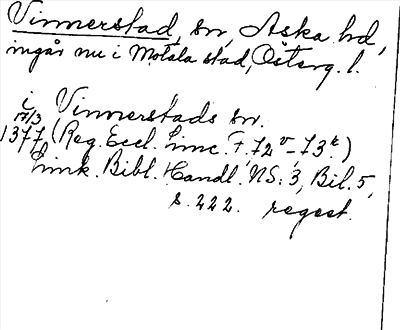 Vinnerstad, sn, Aska hd,
ingår nu i Motala stad, Österg. l.
i Vinnerstads sn.
17/3
1377 (Reg. Eccl. Linc. F. 72v-73r.)
Link. Bibl. Handl. NS: 3, Bil. 5,
s. 222. regest.